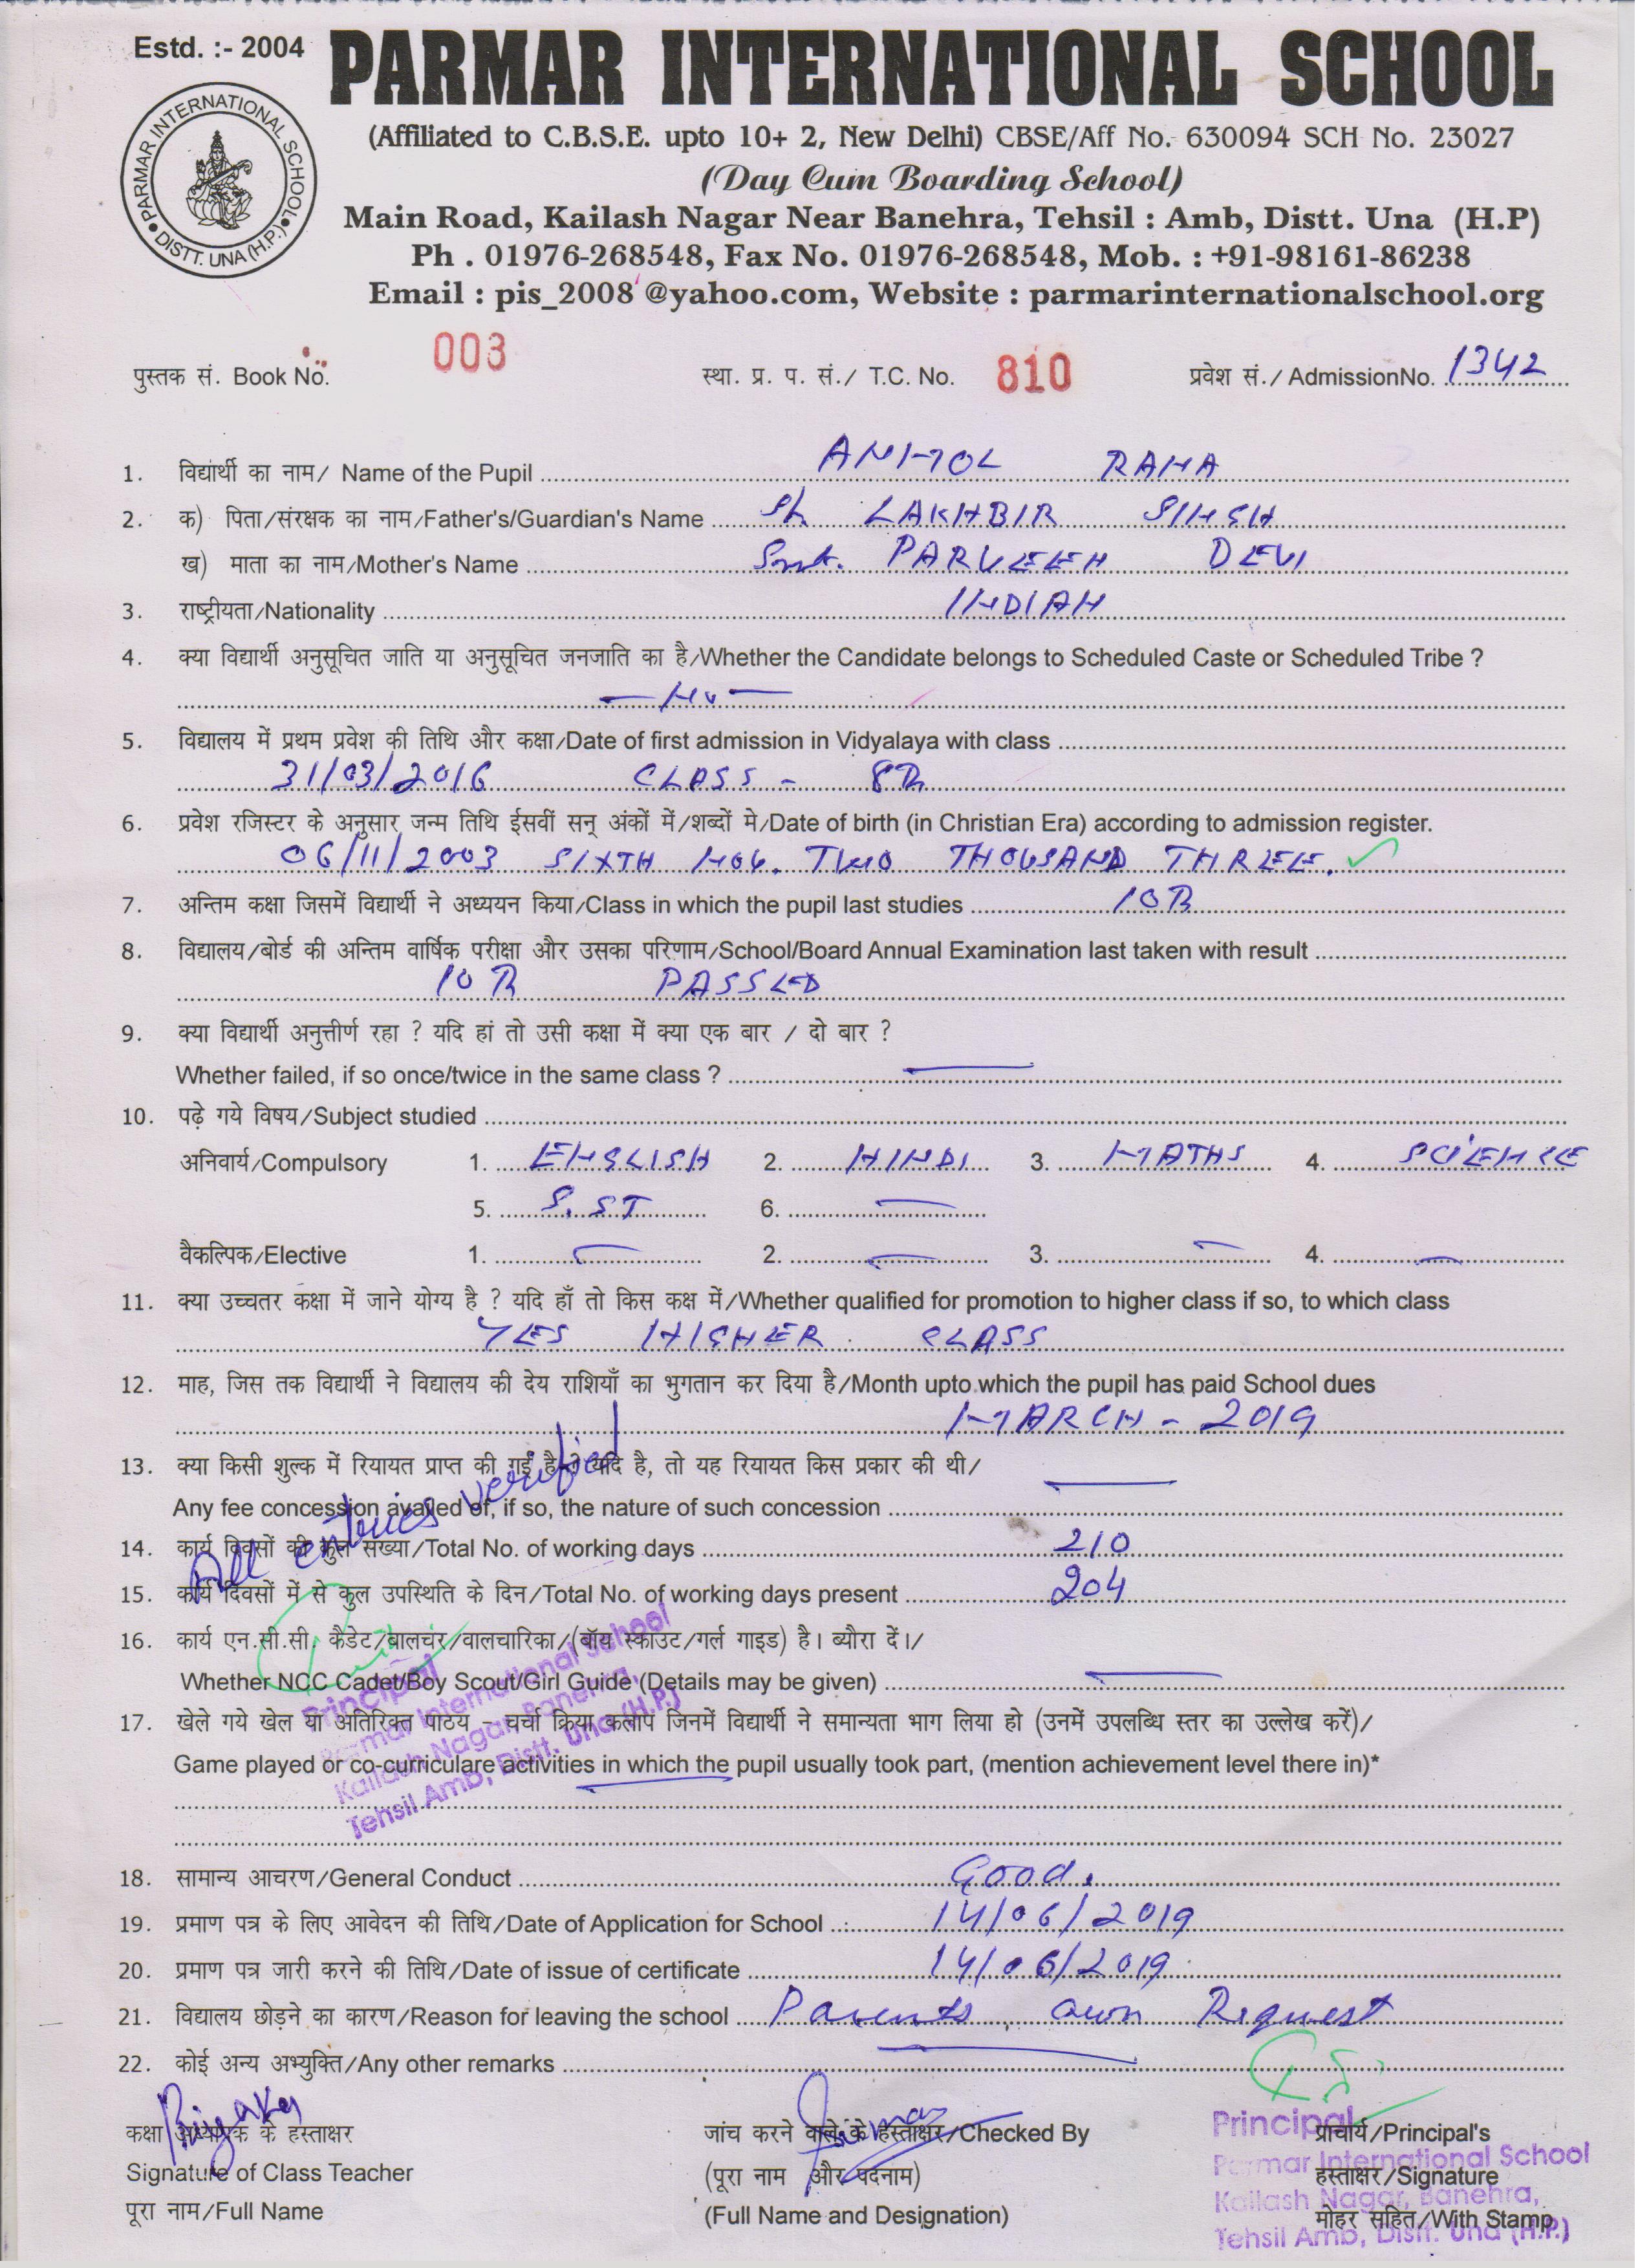 Estd. :- 2004
PARMAR INTERNATIONAL SCHOOL
PARMAR INTERNATIONAL SCHOOL
DISTT. UNA (H.P.)
(Affiliated to C.B.S.E. upto 10+ 2, New Delhi) CBSE/Aff No. 630094 SCH No. 23027
(Day Cum Boarding School)
Main Road, Kailash Nagar Near Banehra, Tehsil : Amb, Distt. Una (H.P)
Ph . 01976-268548, Fax No. 01976-268548, Mob. : +91-98161-86238
Email : pis_2008 @yahoo.com, Website : parmarinternationalschool.org
पुस्तक सं. Book No. 003 स्था. प्र. प. सं./ T.C. No. 810 प्रवेश सं./ AdmissionNo. 1342
1. विद्यार्थी का नाम/ Name of the Pupil ANMOL RANA
2. क) पिता/संरक्षक का नाम/Father's/Guardian's Name Sh. LAKHBIR SINGH
ख) माता का नाम/Mother's Name Smt. PARVEEN DEVI
3. राष्ट्रीयता/Nationality INDIAN
4. क्या विद्यार्थी अनुसूचित जाति या अनुसूचित जनजाति का है/Whether the Candidate belongs to Scheduled Caste or Scheduled Tribe ?
— No —
5. विद्यालय में प्रथम प्रवेश की तिथि और कक्षा/Date of first admission in Vidyalaya with class
31/03/2016 CLASS - 8th
6. प्रवेश रजिस्टर के अनुसार जन्म तिथि ईसवीं सन् अंकों में/शब्दों मे/Date of birth (in Christian Era) according to admission register.
06/11/2003 SIXTH NOV. TWO THOUSAND THREE.
7. अन्तिम कक्षा जिसमें विद्यार्थी ने अध्ययन किया/Class in which the pupil last studies 10th
8. विद्यालय/बोर्ड की अन्तिम वार्षिक परीक्षा और उसका परिणाम/School/Board Annual Examination last taken with result
10th PASSED
9. क्या विद्यार्थी अनुत्तीर्ण रहा ? यदि हां तो उसी कक्षा में क्या एक बार / दो बार ?
Whether failed, if so once/twice in the same class ? —
10. पढ़े गये विषय/Subject studied
अनिवार्य/Compulsory 1. ENGLISH 2. HINDI 3. MATHS 4. SCIENCE
5. S.ST 6. —
वैकल्पिक/Elective 1. — 2. — 3. — 4. —
11. क्या उच्चतर कक्षा में जाने योग्य है ? यदि हाँ तो किस कक्ष में/Whether qualified for promotion to higher class if so, to which class
YES HIGHER CLASS
12. माह, जिस तक विद्यार्थी ने विद्यालय की देय राशियाँ का भुगतान कर दिया है/Month upto which the pupil has paid School dues
MARCH - 2019
13. क्या किसी शुल्क में रियायत प्राप्त की गई है तो यदि है, तो यह रियायत किस प्रकार की थी/
Any fee concession avayled of, if so, the nature of such concession —
All entries verified
14. कार्य दिवसों की कुल संख्या/Total No. of working days 210
15. कार्य दिवसों में से कुल उपस्थिति के दिन/Total No. of working days present 204
16. कार्य एन.सी.सी. कैडेट/बालचर/वालचारिका/(बॉय स्काउट/गर्ल गाइड) है। ब्यौरा दें।/
Whether NCC Cadet/Boy Scout/Girl Guide (Details may be given) —
Principal
Parmar International School
Kailash Nagar, Banehra,
Tehsil Amb, Distt. Una (H.P.)
17. खेले गये खेल या अतिरिक्त पाठय - चर्चा क्रिया कलाप जिनमें विद्यार्थी ने समान्यता भाग लिया हो (उनमें उपलब्धि स्तर का उल्लेख करें)/
Game played or co-curriculare activities in which the pupil usually took part, (mention achievement level there in)*
18. सामान्य आचरण/General Conduct Good.
19. प्रमाण पत्र के लिए आवेदन की तिथि/Date of Application for School 14/06/2019
20. प्रमाण पत्र जारी करने की तिथि/Date of issue of certificate 14/06/2019
21. विद्यालय छोड़ने का कारण/Reason for leaving the school Parents own Request
22. कोई अन्य अभ्युक्ति/Any other remarks —
कक्षा अध्यापक के हस्ताक्षर जांच करने वाले के हस्ताक्षर/Checked By प्राचार्य/Principal's
Signature of Class Teacher (पूरा नाम और पदनाम) हस्ताक्षर/Signature
पूरा नाम/Full Name (Full Name and Designation) मोहर सहित/With Stamp
Principal
Parmar International School
Kailash Nagar, Banehra,
Tehsil Amb, Distt. Una (H.P.)